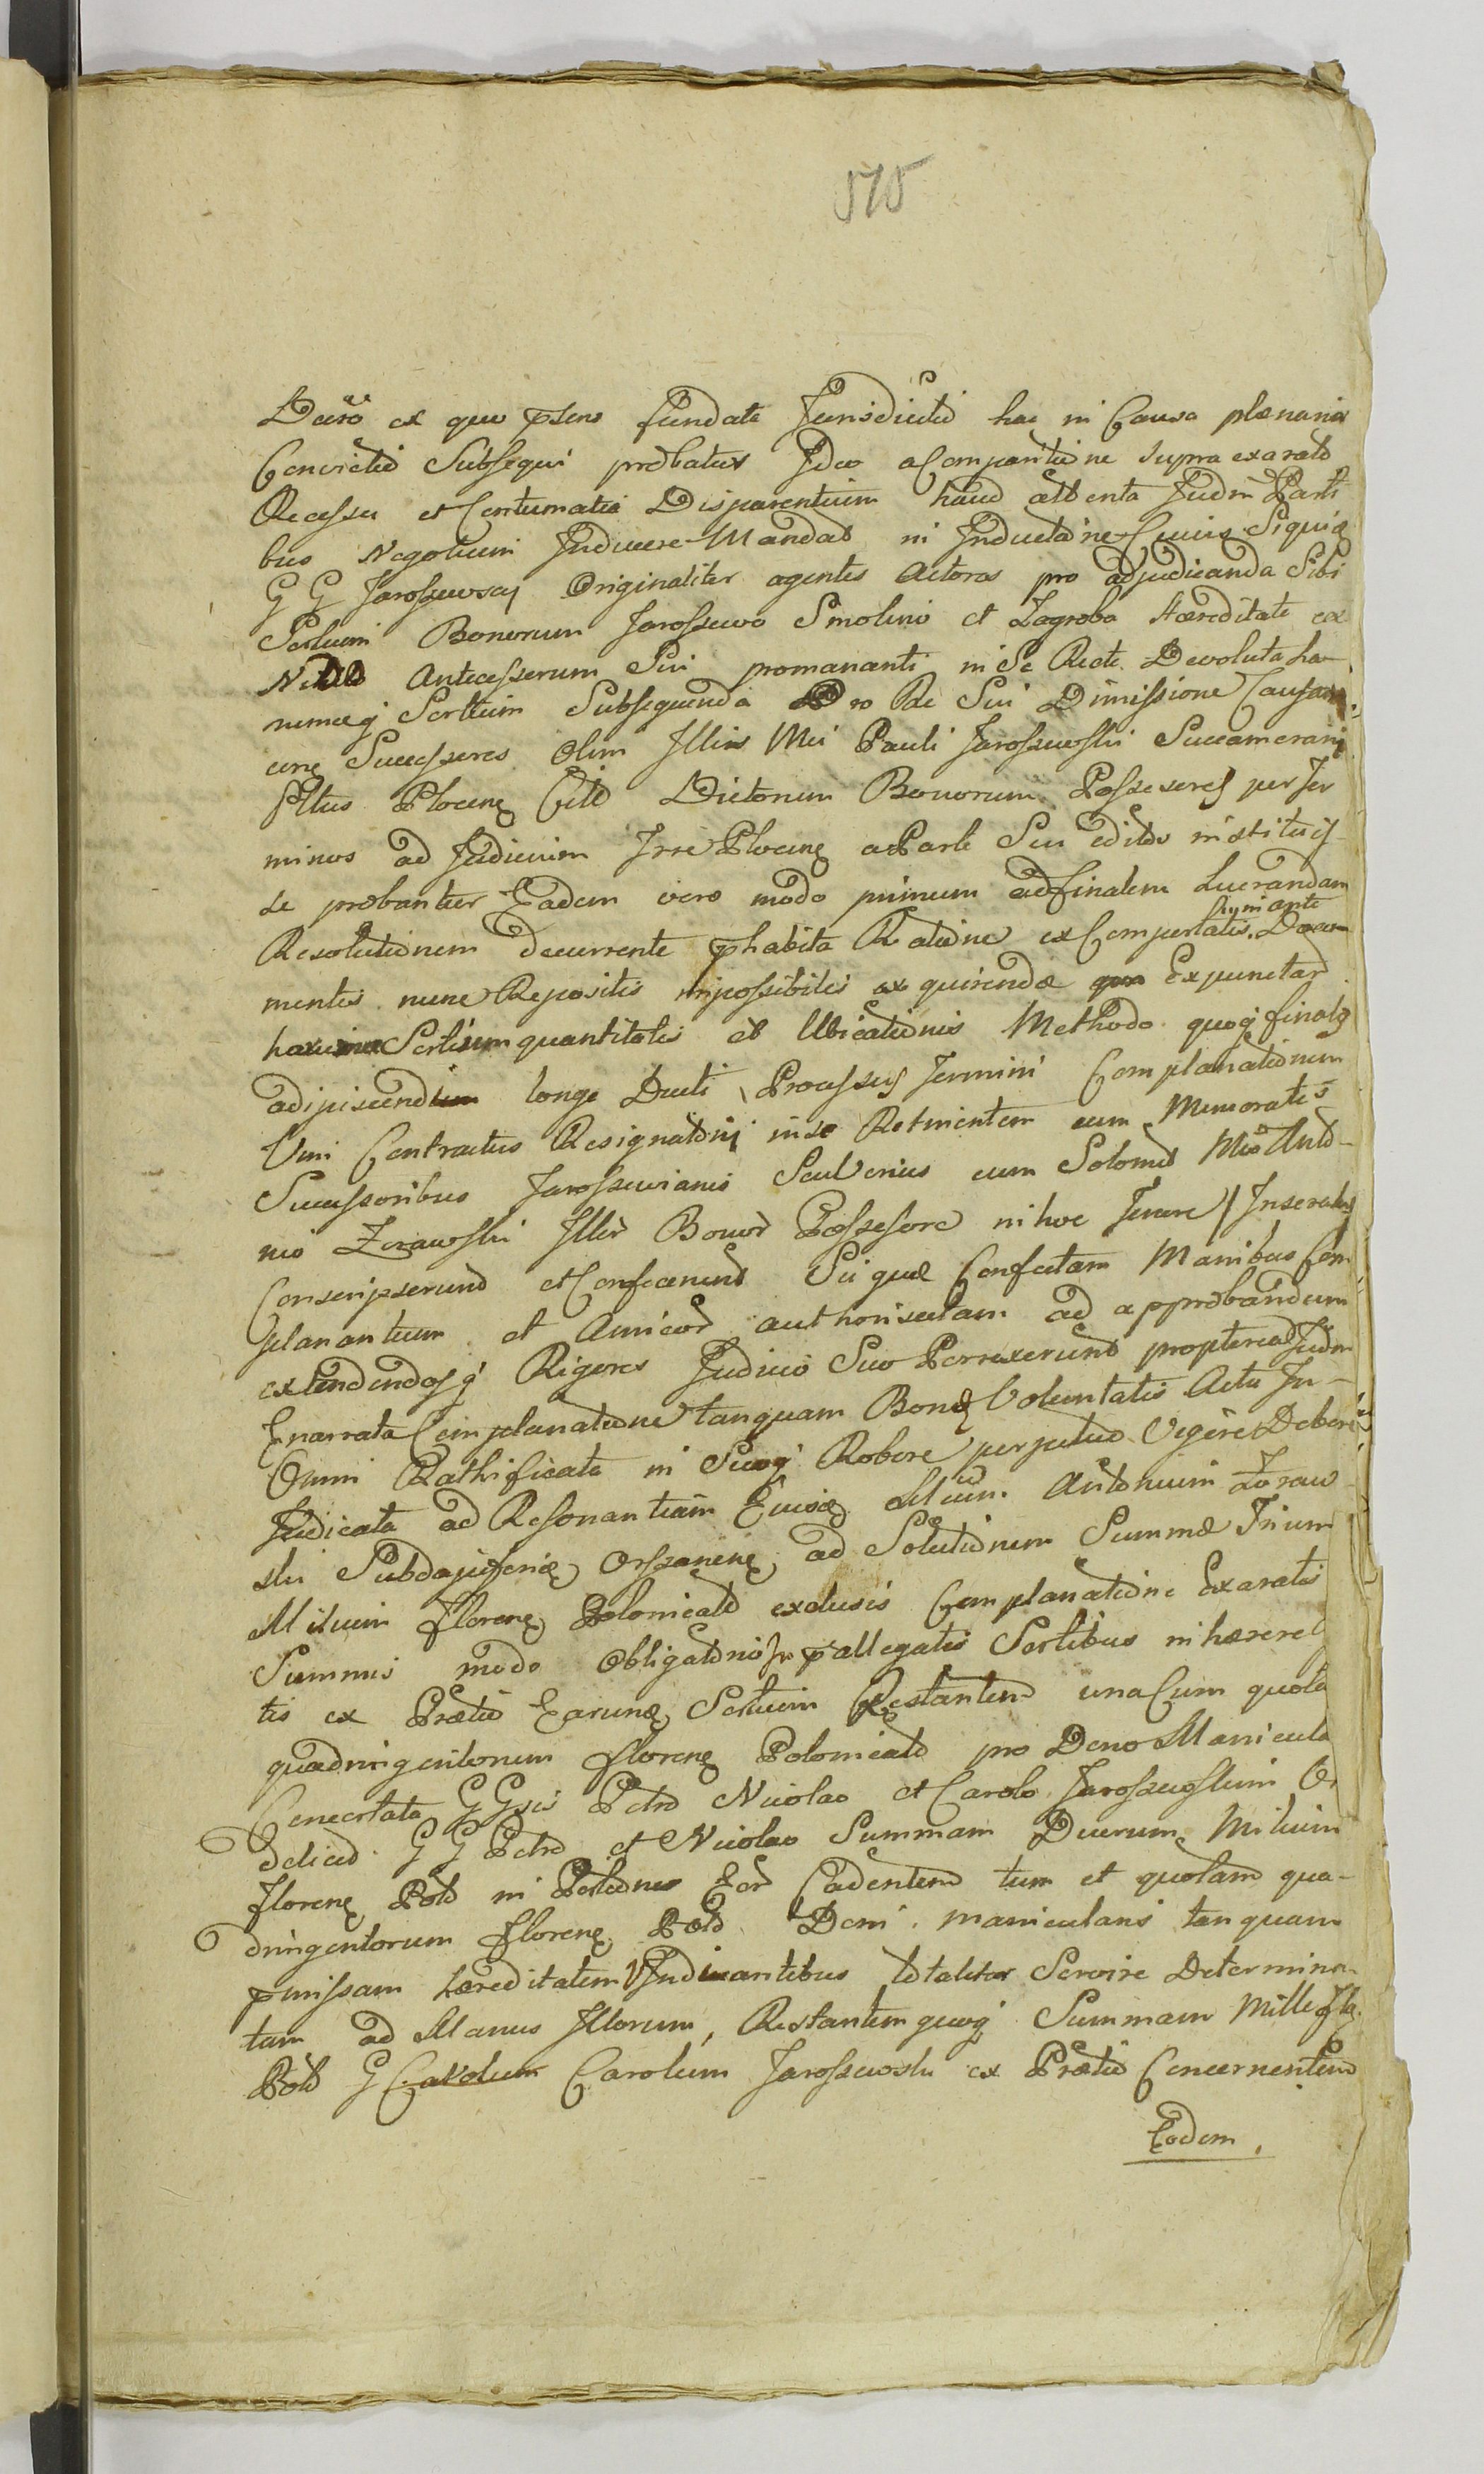 575
Decreto ex quo pñsens fundata Jurisdictio hac in Causa plænaria
Convictio Subsequi probatur Ideo a Comparitione supra exarato
Recessu et Contumatia Disparentium haud attenta Judm Parti
bus Negotium Inducere Mandat in Inductione Cuius Siquidẽ
G G Jaroszewscy Originaliter agentes Actores pro adjudicanda Sibi
Sortium Bonorum Jaroszewo Smolino et Zagroba Hæreditate ex
Antecessorum Sui promananti in Se Recte Devoluta ha
rumcq Sortium Subsequenda Pro Re Sui Dimissione Causam
cuñ Successores Olim Illius Mei Pauli Jaroszewski Succamerarij
Pttus Plocens Dictorum Bonorum Possessores per Ter
minos ad Judicium Trre Plocens a Parte Sui editos instituis
se probantur Eadem vero modo primum ad finalem Lucrandam
Resolutionem decurrente phabita Ratione ex Comportatis hymante Docu
mentis nunc Repositis impossibilis exquirendæ Expunctar
harum Sortium quantitatis et Ubicationis Methodo quoq finalẽ
adipiscend longe Ducti Processus Termini Complanationem
Vim Contractus Resignatorij in se Retinentem cum Memoratis
Successoribus Jaroszewianis Seu Verius cum Solomet Mco Anto-
nio Zorawski Illor Bonor Possessore in hoc Tenore / Inseratur /
Conscripserunt et Confecerunt Sicque Confectam Manibus Com
planantium et Amicor authorisatam ad approbandum
extendendosq Rigores Judicio Suo Porrexerunt propterea Judm
Enarrata Complanatione tanquam Bonæ Voluntatis Actu In-
Omni Rathificata in Suoq Robore perpetuo Vigere Debere
Judicata ad Resonantiam Eiusdẽ Mcum Antonium Zoraw
ski Subdapiferũ Orszanens ad Solutionem Summæ Trium
Millium florenor Polonicald exclusis Complanatione Exaratis
Summis modo Obligatorio In pallegatis Sortibus inhæren
tis ex Prætio Earundẽ Sortium Restantem una Cum quota
quadringentorum florenor Polonicald pro Deno Manicula
Concertata G Gsis Petro Nicolao et Carolo Jaroszewskim Vi
delicet G G Petro et Nicolao Summam Duorum Millium
florenor Pold in Portiones Eor Cadentem tum et quotam qua-
dringentorum florenor Pold Deni manicularis tanquam
pmissam hæreditatem Vindicantibus totaliter Servire Determina
tam ad Manus Illorum, Restantem quoq Summam Mille flo.
Pold G Carolum Jaroszewski ex Prætio Concernentem
Eodem,